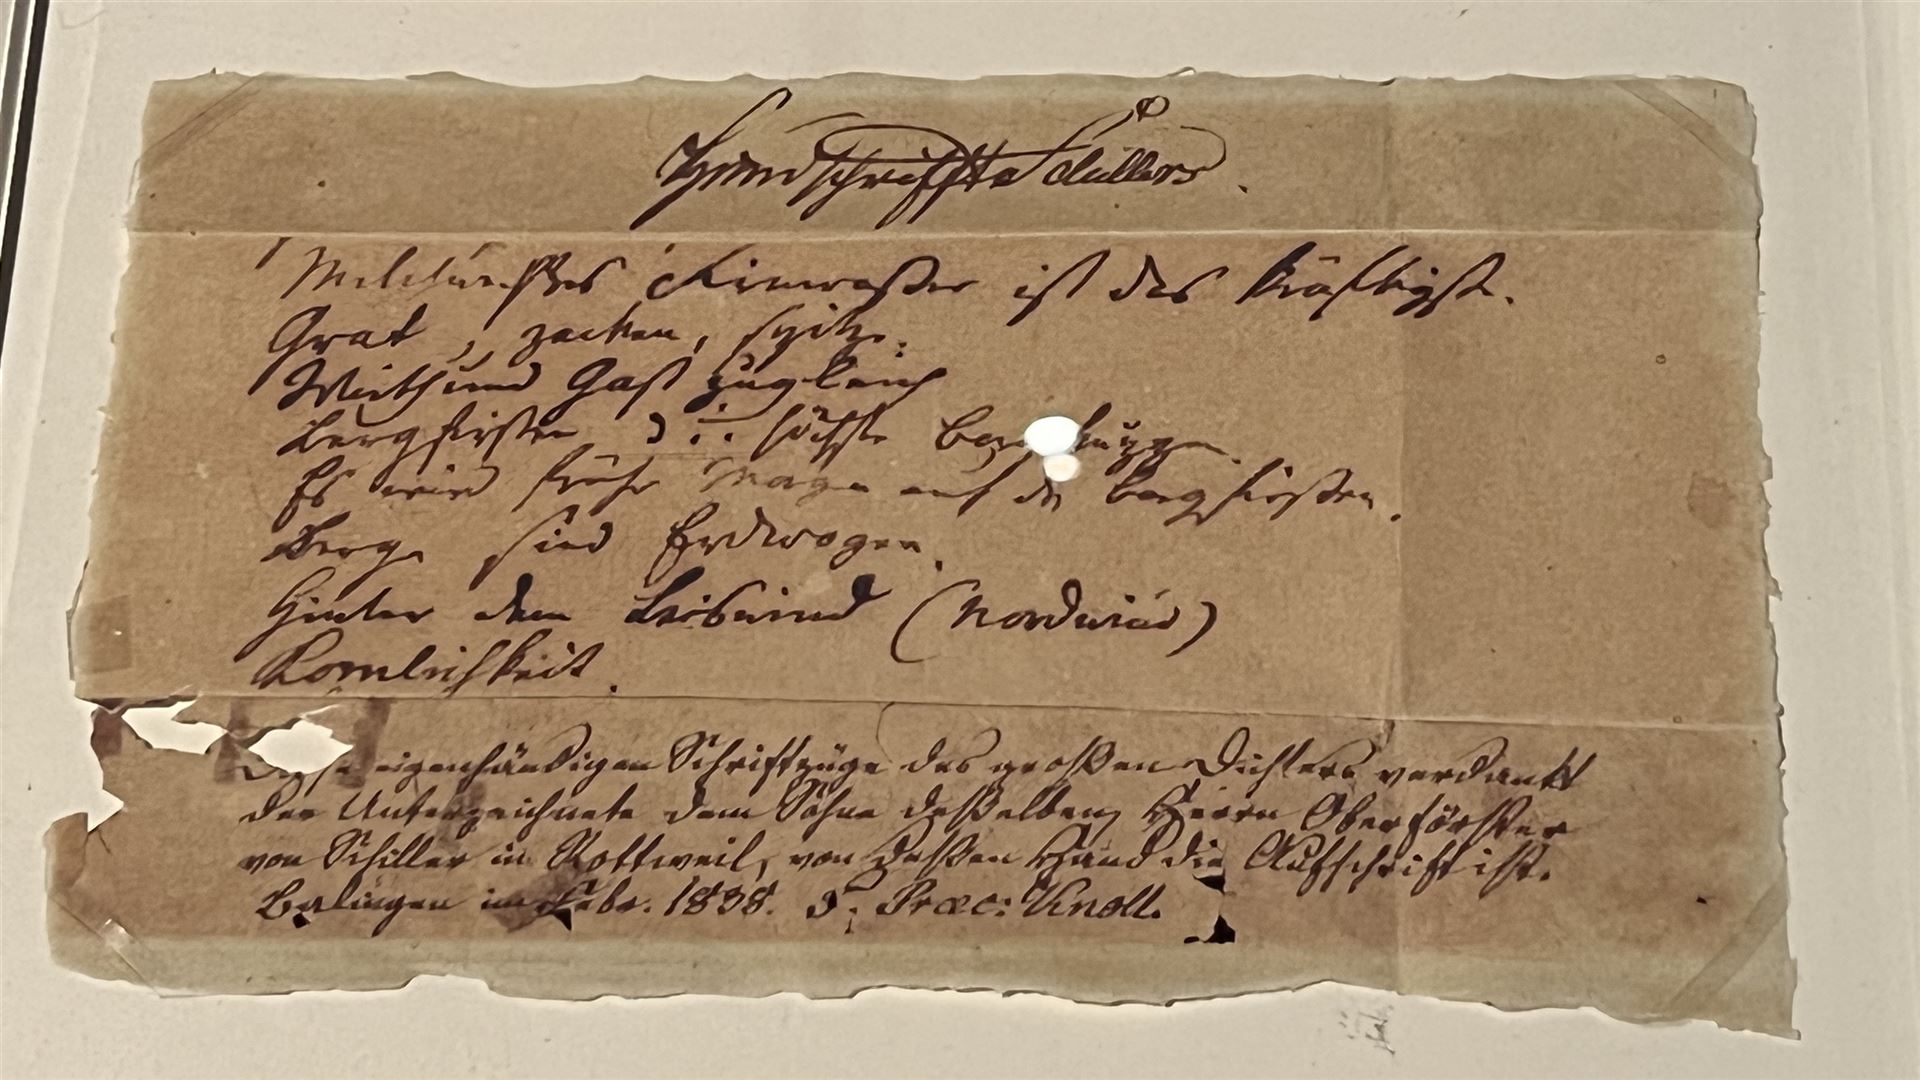 Handschrifft Schillers.
Firnwaßer ist das kräftigste.
Grat, zacken, spitze.
Wirth und Gast zugleich
Bergfirsten d. i. höchste kuppen.
Es wird frühe auf den Bergfirsten.
Berge sind Erdwogen.
Hinter dem (Nordwind)
Komlichkeit.
eigenhändigen Schriftzüge des großen Dichters verdankt
der Unterzeichnete dem Sohne deßelben, Herrn Oberförster
von Schiller in Rottweil, von deßen Hand die Aufschrift ist.
Balingen im Febr. 1838. Praec: Knoll.